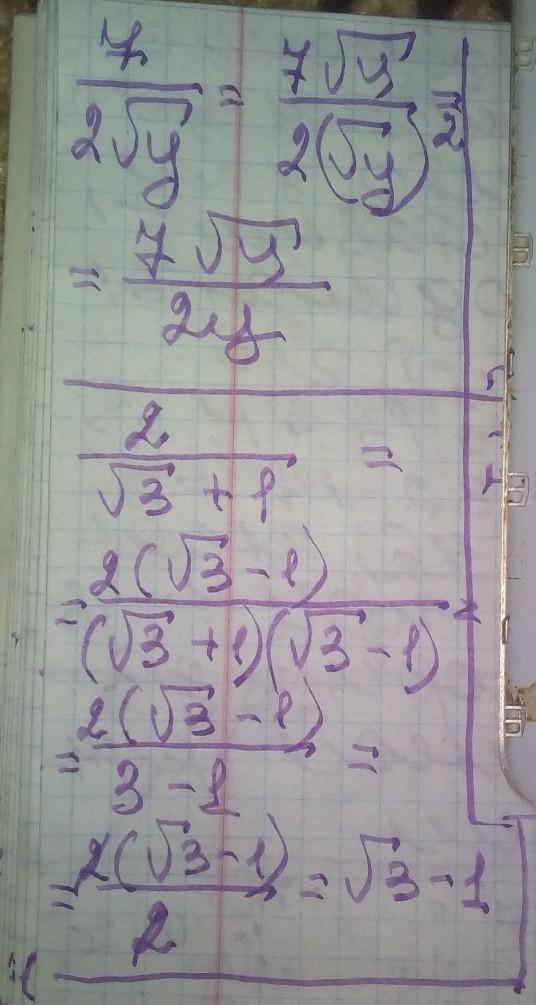 7/(2√y) = 7√y/(2(√y)²) =
= 7√y/(2y)
2/(√3 + 1) =
= 2(√3 - 1)/((√3 + 1)(√3 - 1)) =
= 2(√3 - 1)/(3 - 1) =
= 2(√3 - 1)/2 = √3 - 1